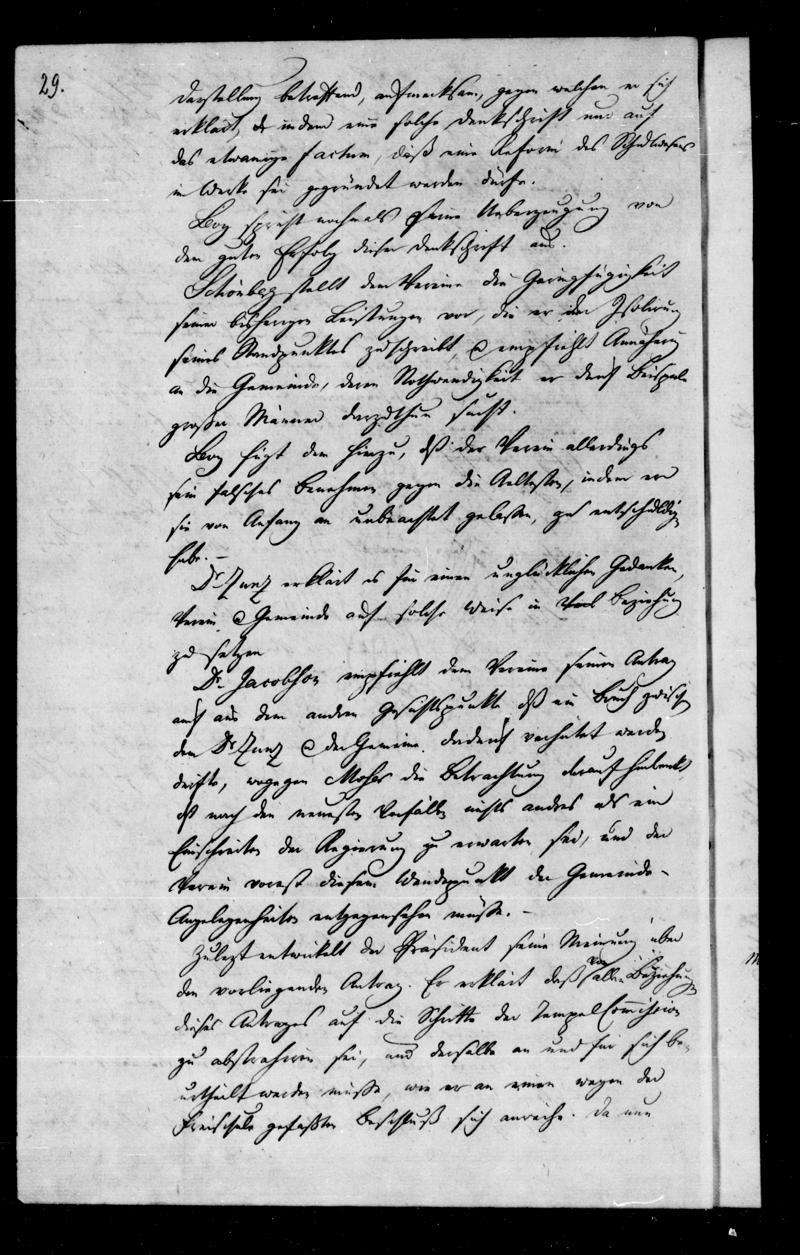 29.
Darstellung betreffend, aufmerksam, gegen welchen er sich
erklärt, indem eine solche Denkschrift nur auf
das etwanige factum, daß eine Reform des Schulwesens
im Werke sei gegründet werden dürfe.
spricht nochmals seine Ueberzeugung von
dem guten Erfolg dieser Denkschrift aus.
Schönberg stellt dem Vereine die Geringfügigkeit
seiner bisherigen Leistungen vor, die er der Isolirung
seines Standpunktes zuschreibt, & empfiehlt Annäherung
an die Gemeinde, deren Nothwendigkeit er durch Beispiele
großer Männer darzuthun sucht.
fügt dem hinzu, dß der Verein allerdings
sein falsches Benehmen gegen die Aeltesten, indem er
sie von Anfang an unbeachtet gelassen, zu entschuldigen
habe. –
Dr. Zunz erklärt es für einen unglücklichen Gedanken,
Verein & Gemeinde auf solche Weise in Beziehung
zu setzen
Dr. Jacobson empfiehlt dem Vereine seinen Antrag
auch aus dem andren Gesichtspunkte dß ein Bruch zwischen
dem Dr. Zunz & der Gemeine dadurch verhütet werden
dürfte, wogegen Moser die Betrachtung darauf hinlenkt,
dß nach den neuesten Vorfällen nichts andres als ein
Einschreiten der Regierung zu erwarten sei, und der
Verein vorerst diesem Wendepunkt der Gemeinde-
Angelegenheiten entgegensehen müsse. –
Zuletzt entwickelt der Präsident seine Meinung über
den vorliegenden Antrag. Er erklärt daß von allen Beziehungen
dieses Antrages auf die Schritte der Tempel Commission
zu abstrahiren sei, und derselbe an und für sich be-
urtheilt werden müsse, wie er an einen wegen der
Freischule gefaßten Beschluß sich anreihe. Da nun